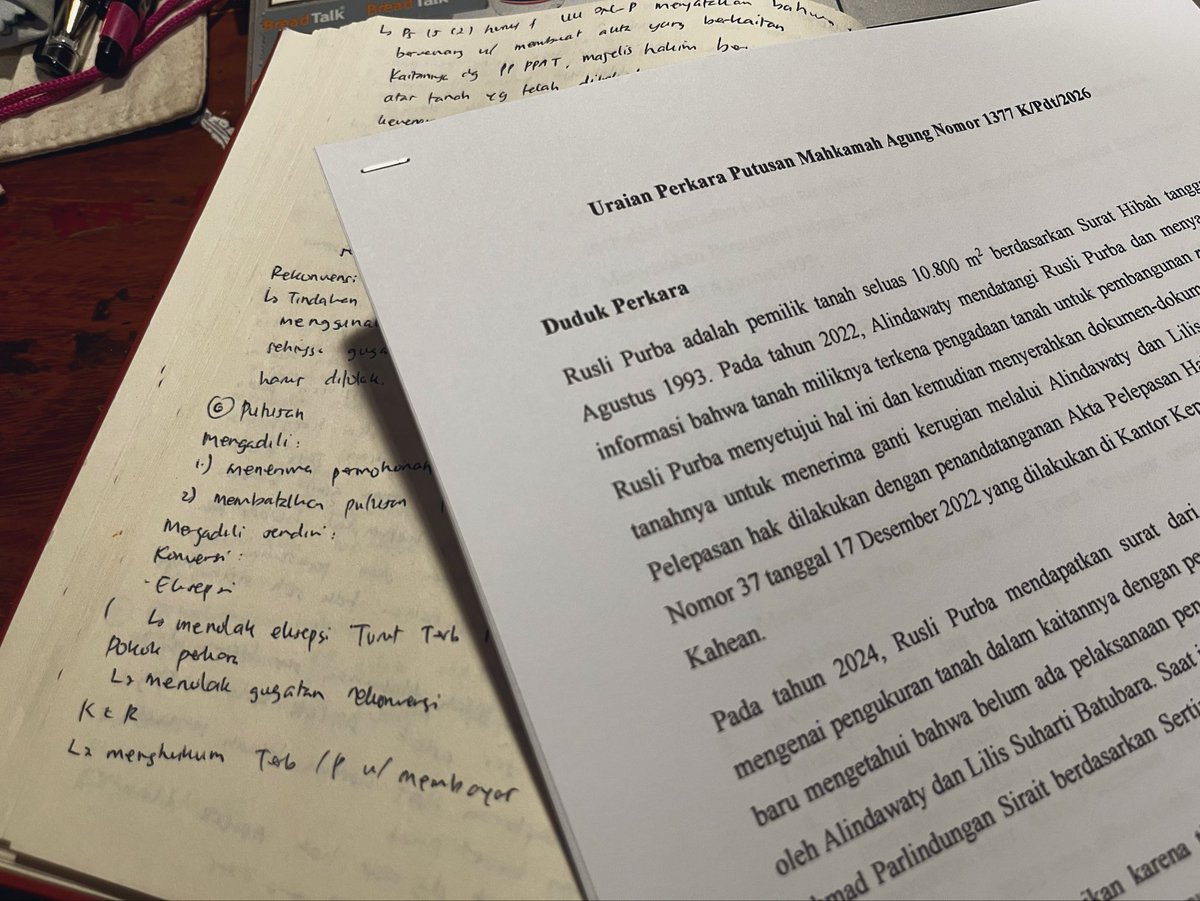 BreadTalk BreadTalk
↳ Ps 15 (2) huruf f UU menyatakan bahwa
berwenang u/ membuat akta yang berkaitan
Kaitannya dg PP PPAT, majelis hakim
atas tanah yg telah
Rekonvensi:
↳ Tindakan
sehingga
harus ditolak.
⑥ Putusan
Mengadili:
1.) menerima permohonan
2) membatalkan putusan
Mengadili sendiri:
Konvensi:
- Eksepsi
↳ menolak eksepsi Turut Terb
Pokok perkara
↳ menolak gugatan rekonvensi
K & R
↳ menghukum Terb / P u/ membayar
Uraian Perkara Putusan Mahkamah Agung Nomor 1377 K/Pdt/2026
Duduk Perkara
Rusli Purba adalah pemilik tanah seluas 10.800 m² berdasarkan Surat Hibah
Agustus 1993. Pada tahun 2022, Alindawaty mendatangi Rusli Purba dan
informasi bahwa tanah miliknya terkena pengadaan tanah untuk pembangunan
Rusli Purba menyetujui hal ini dan kemudian menyerahkan
tanahnya untuk menerima ganti kerugian melalui Alindawaty dan Lilis
Pelepasan hak dilakukan dengan penandatanganan Akta Pelepasan
Nomor 37 tanggal 17 Desember 2022 yang dilakukan di Kantor
Kahean.
Pada tahun 2024, Rusli Purba mendapatkan surat dari
mengenai pengukuran tanah dalam kaitannya dengan
baru mengetahui bahwa belum ada pelaksanaan
oleh Alindawaty dan Lilis Suharti Batubara. Saat
Parlindungan Sirait berdasarkan
karena